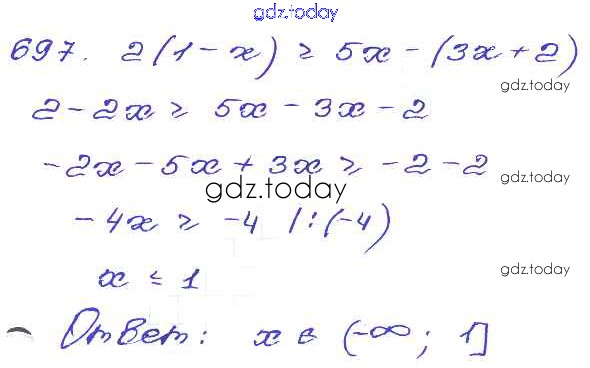 gdz.today
697. 2(1-x) ≥ 5x-(3x+2)
gdz.today
2-2x ≥ 5x-3x-2
-2x-5x+3x ≥ -2-2
gdz.today
gdz.today
-4x ≥ -4 /:(-4)
x ≤ 1
gdz.today
Ответ: x ∈ (-∞; 1]